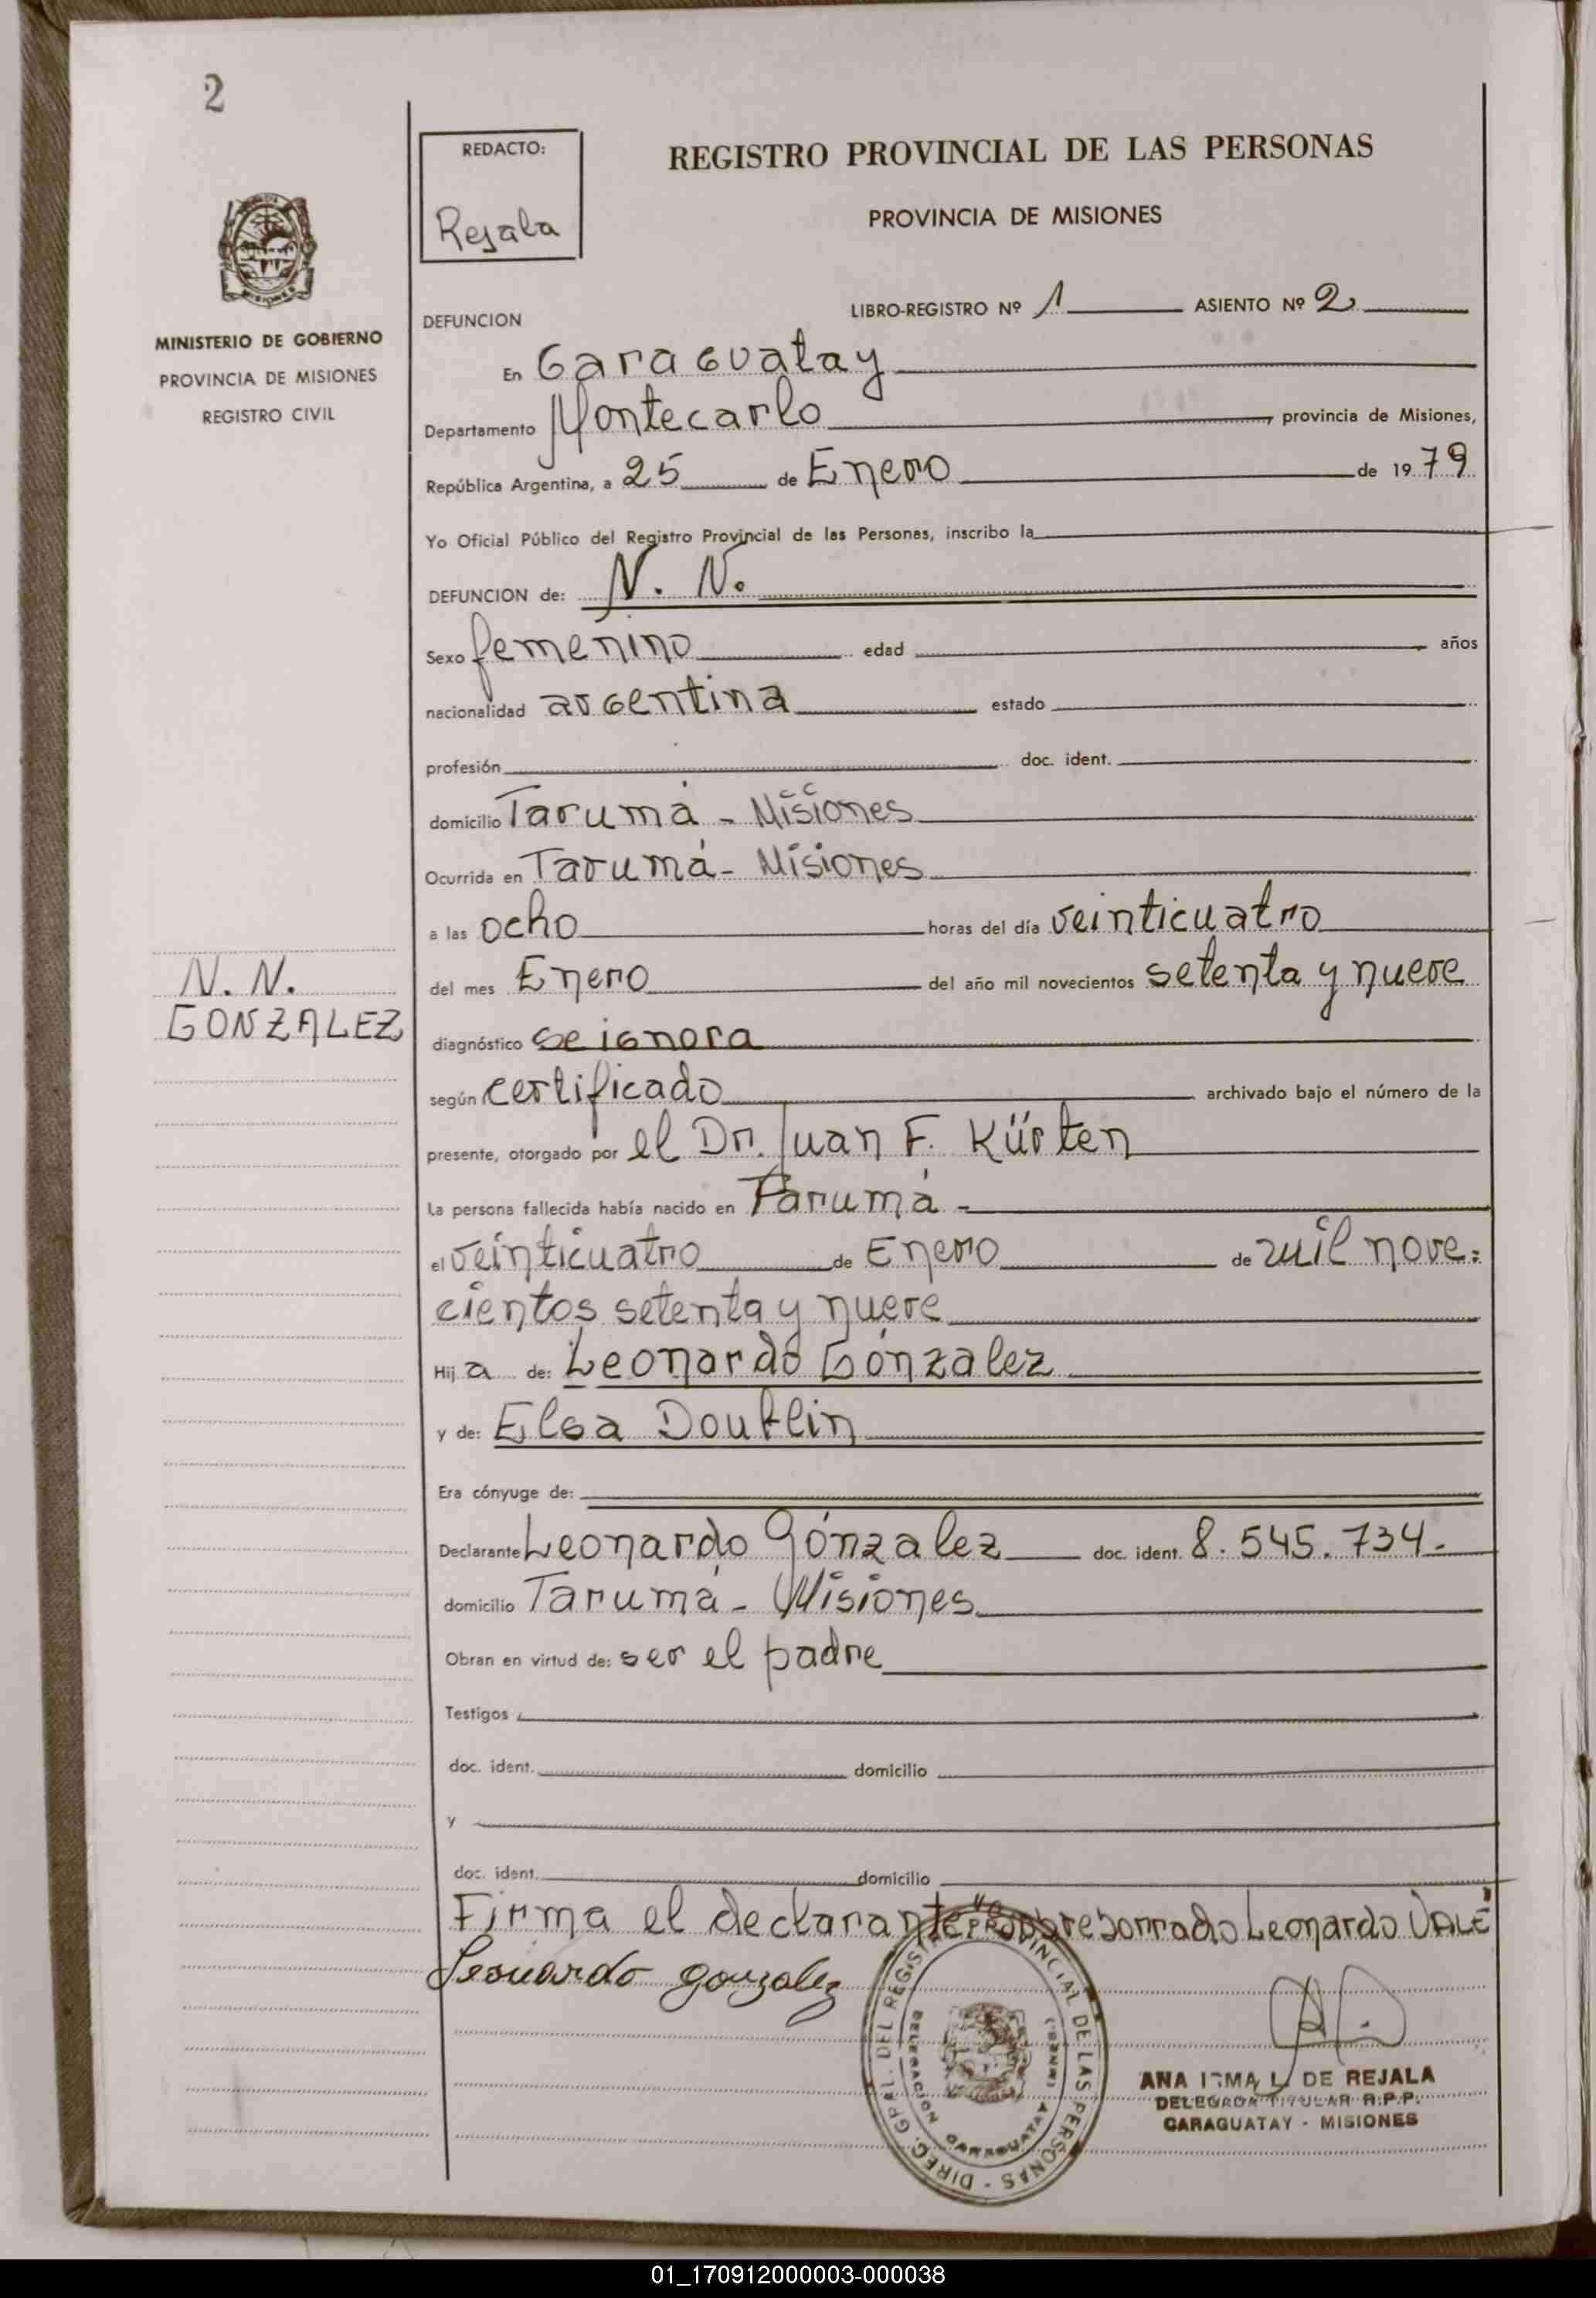 2
REDACTO:
Rejala
REGISTRO PROVINCIAL DE LAS PERSONAS
PROVINCIA DE MISIONES
MINISTERIO DE GOBIERNO
PROVINCIA DE MISIONES
REGISTRO CIVIL
DEFUNCION
LIBRO-REGISTRO Nº 1 ASIENTO Nº 2
En Caraguatay
Departamento Montecarlo provincia de Misiones,
República Argentina, a 25 de Enero de 1979
Yo Oficial Público del Registro Provincial de las Personas, inscribo la
DEFUNCION de: N. N.
Sexo femenino edad años
nacionalidad argentina estado
profesión doc. ident.
domicilio Tarumá - Misiones
Ocurrida en Tarumá - Misiones
a las ocho horas del día veinticuatro
N. N.
GONZALEZ
del mes Enero del año mil novecientos setenta y nueve
diagnóstico se ignora
según certificado archivado bajo el número de la
presente, otorgado por el Dr. Juan F. Kürten
La persona fallecida había nacido en Tarumá -
el veinticuatro de Enero de mil nove=
cientos setenta y nueve
Hija de: Leonardo Gónzalez
y de: Elsa
Era cónyuge de:
Declarante Leonardo Gónzalez doc. ident. 8.545.734.
domicilio Tarumá - Misiones
Obran en virtud de: ser el padre
Testigos
doc. ident. domicilio
y
doc. ident. domicilio
Firma el declarante sobreborrado Leonardo VALE
Leonardo gonzalez
DIREC. GRAL. DEL REGISTRO PROVINCIAL DE LAS PERSONAS -
DELEGACION CARAGUATAY
ANA IRMA L. DE REJALA
DELEGADA TITULAR R.P.P.
CARAGUATAY - MISIONES
01_170912000003-000038